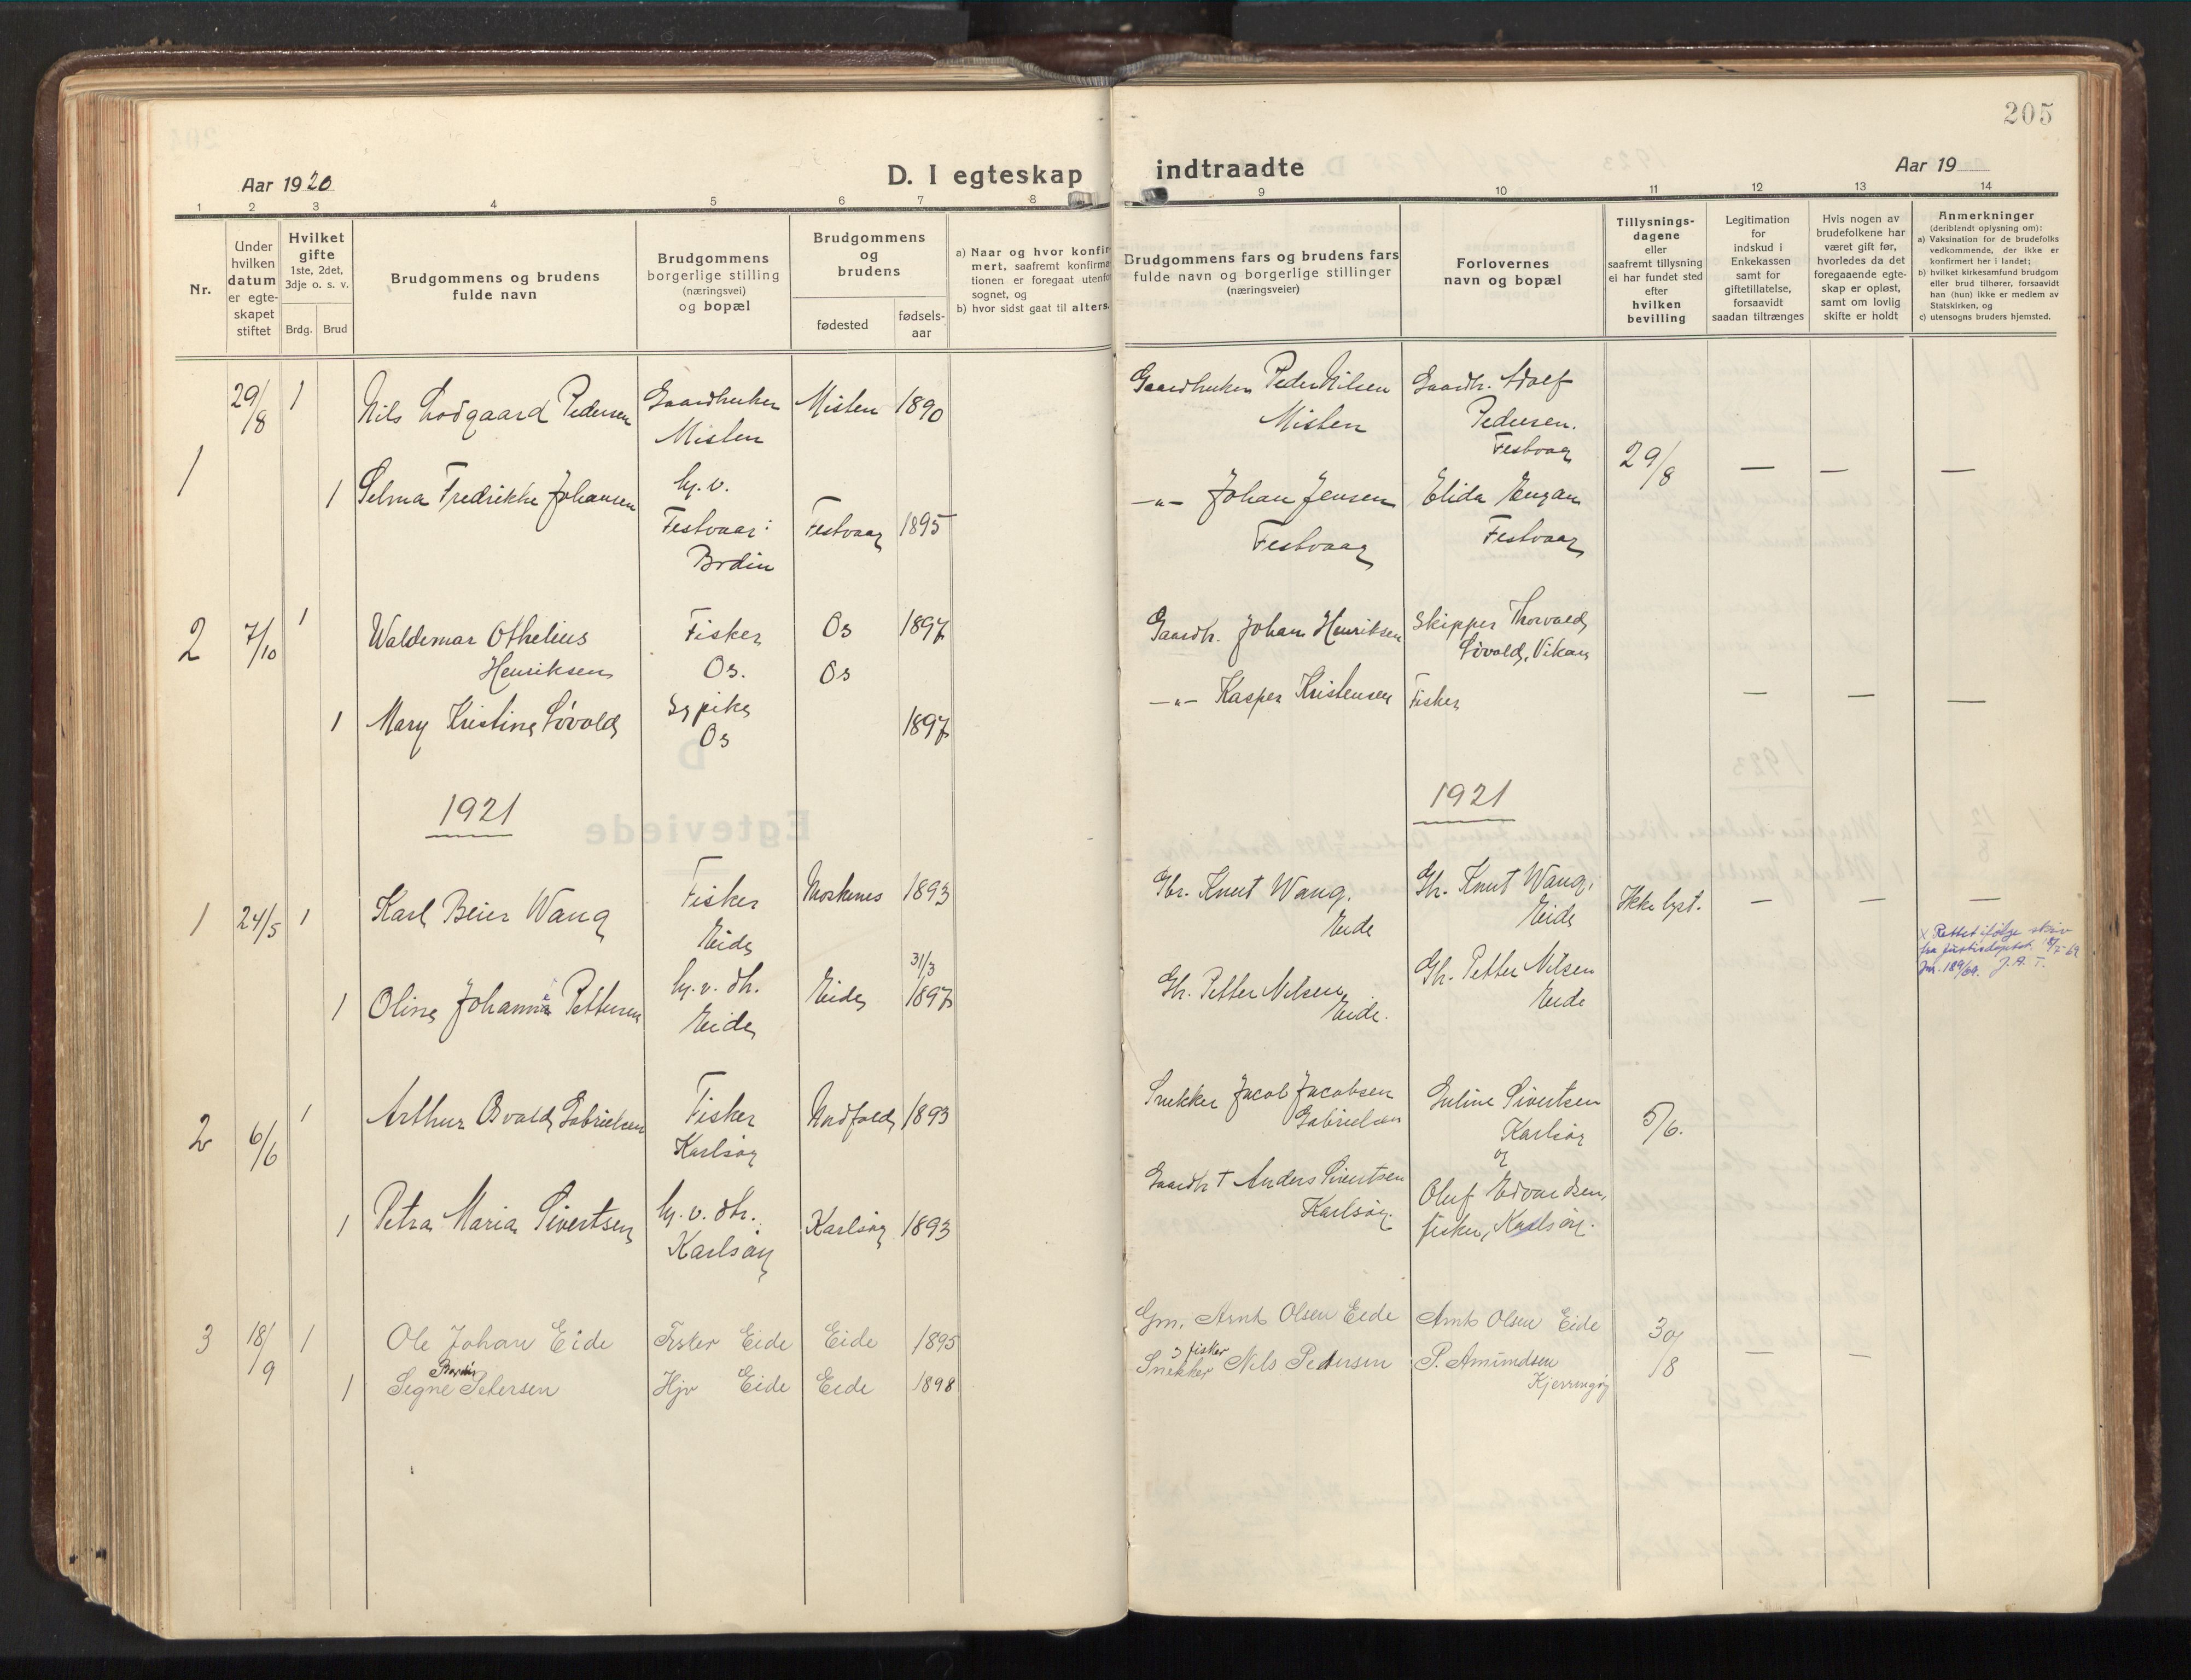 205
Aar 1920
D. I egteskap indtraadte
Aar 19
1 2 3 4 5 6 7 8 9 10 11 12 13 14
Nr.
Under
hvilken
datum
er egte-
skapet
stiftet
Hvilket
gifte
1ste, 2det,
3dje o. s. v.
Brdg. Brud
Brudgommens og brudens
fulde navn
Brudgommens
borgerlige stilling
(næringsvei)
og bopæl
Brudgommens
og
brudens
fødested
fødsels-
aar
a) Naar og hvor konfir-
mert, saafremt konfirma
tionen er foregaat utenfo
sognet, og
b) hvor sidst gaat til alters.
Brudgommens fars og brudens fars
fulde navn og borgerlige stillinger
(næringsveier)
Forlovernes
navn og bopæl
Tillysnings-
dagene
eller
saafremt tillysning
ei har fundet sted
efter
hvilken
bevilling
Legitimation
for
indskud i
Enkekassen
samt for
giftetillatelse,
forsaavidt
saadan tiltrænges
Hvis nogen av
brudefolkene har
været gift før,
hvorledes da det
foregaaende egte-
skap er opløst,
samt om lovlig
skifte er holdt
Anmerkninger
(deriblendt oplysning om):
a) Vaksination for de brudefolks
vedkommende, der ikke er
konfirmert her i landet;
b) hvilket kirkesamfund brudgom
eller brud tilhører, forsaavidt
han (hun) ikke er medlem av
Statskirken, og
c) utensogns bruders hjemsted.
1 29/8 1 Nils Lodgaard Pedersen Gaardbruker Misten Misten 1890 Gaardbruker Peder Nilsen Misten Gaardb. Adolf Pedersen. Festvaag 29/8 — — —
1 Selma Fredrikke Johansen hj. v. Festvaag: Bodin Festvaag 1895 -"- Johan Jensen Festvaag Elida Engan Festvaag
2 7/10 1 Waldemar Othelius Henriksen Fisker Os. Os Os 1897 Gaardb. Johan Henriksen Skipper Thorvald Løvold, Vikan
1 Mary Kristine Løvold Sypike Os 1897 -"- Kasper Kristensen Fisker — — —
1921
1921
1 24/5 1 Karl Beier Wang Fisker Eide Moskenes 1893 Gbr. Knut Wang. Eide Gb. Knut Wang, Eide Ikke lyst. — — —
x Rettet ifølge skriv
fra Justisdeptet.
Jnr. 189/69. J. A. T.
1 Oline Johanna Pettersen hj. v. dtr. Eide Eide 31/3 1897 Gb. Petter Nilsen Eide. Gb. Petter Nilsen Eide
2 6/6 1 Arthur Osvald Gabrielsen Fisker Karlsøy Nordfold 1893 Snekker Jacob Jacobsen Gabrielsen Guline Sivertsen Karlsøy og 5/6.
1 Petra Maria Sivertsen hj. v. dtr. Karlsøy Karlsøy 1893 Gaardb † Anders Sivertsen Karlsøy. Oluf Edvardsen, fisker, Karlsøy.
3 18/9 1 Ole Johan Eide Fisker Eide Eide 1895 Gm. Arnt Olsen Eide Arnt Olsen Eide 30/8 — —
1 Segne Petersen Hjv Eide Eide 1898 Snekker og fisker Nils Pedersen P. Amundsen Kjerringøy